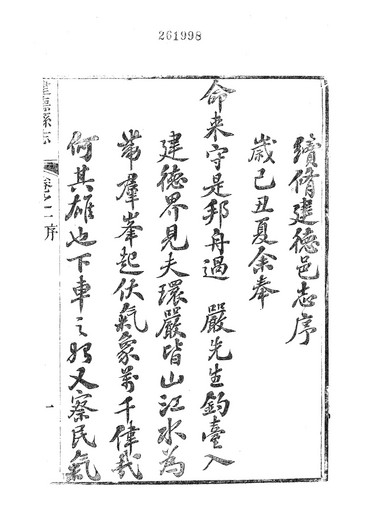 261998
續脩建德邑志序
歲己丑夏余奉
命來守是邦舟過 嚴先生釣臺入
建德界見夫環嚴皆山江水為
帶羣峯起伏氣象萬千偉哉
何其雄也下車之始又察民氣
建德縣志
卷之一 序
一